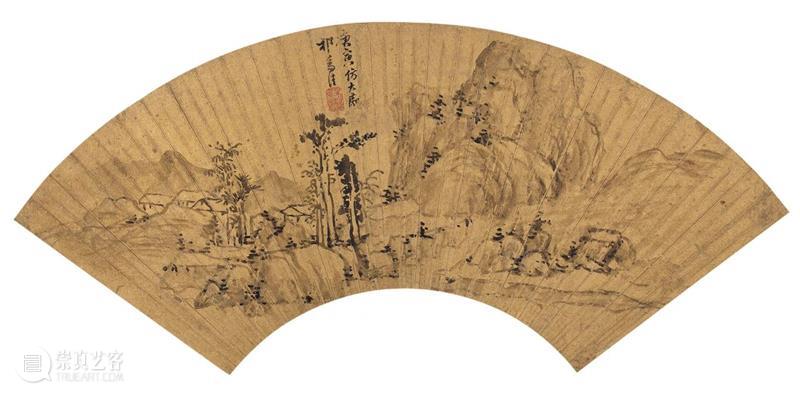 庚寅仿大痴
祁豸佳
崇真艺客
TRUEART.COM